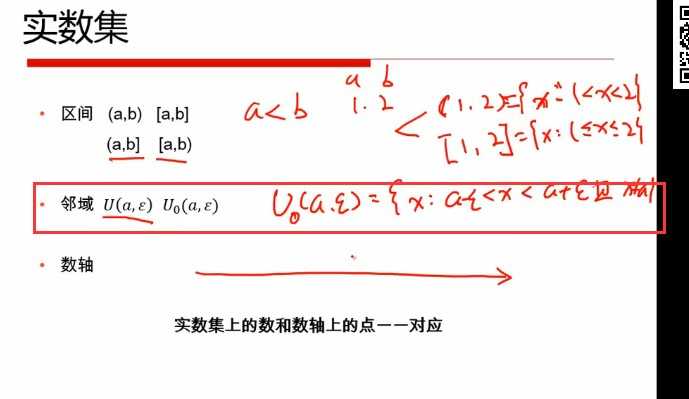 实数集
a b
1. 2
• 区间 (a,b) [a,b] a<b (1,2)={x: 1<x<2}
(a,b] [a,b) [1,2]={x: 1≤x≤2}
• 邻域 U(a,ε) U₀(a,ε) U₀(a.ε)={x: a-ε<x<a+ε且x≠a}
• 数轴
实数集上的数和数轴上的点一一对应